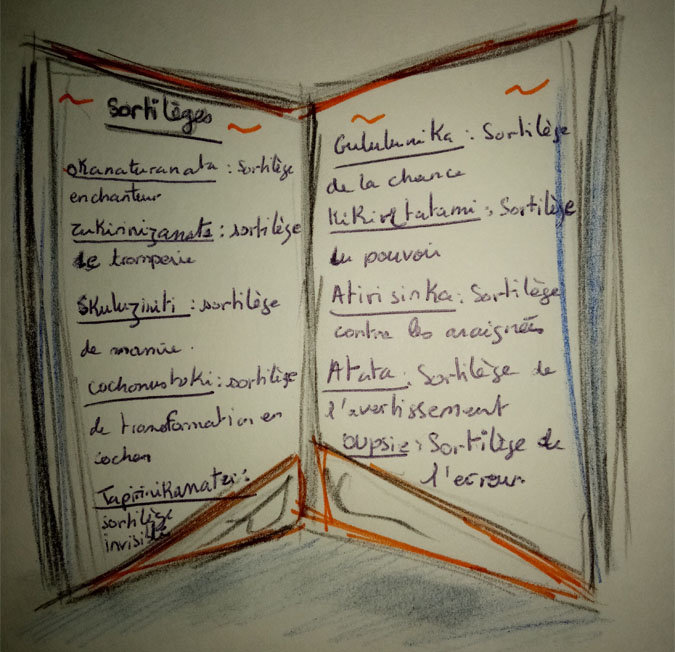 Sortilèges
Okanaturanata : Sortilège
enchanteur
Zukirinizanata : sortilège
de tromperie
Skuluziniti : sortilège
de mamie.
cochonustoki : sortilège
de transformation en
cochon
Tapirinikanatei :
sortilège
invisible
Gululunika : Sortilège
de la chance
Kikiristatami : Sortilège
du pouvoir
Atirisinka : Sortilège
contre les araignées
Atata : Sortilège de
l'avertissement
oupsie : Sortilège de
l'erreur